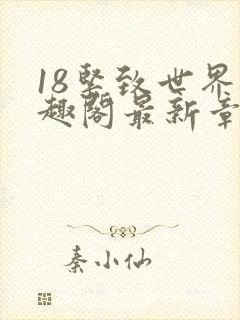 18坚致世界
趣阁最新章
秦小仙